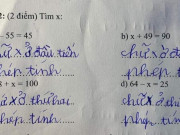 (2 điểm) Tìm x:
- 55 = 45
b) x + 49 = 90
chữ x ở đầu tiên
chữ x ở
phép tính
phép t
8 + x = 100
d) 64 – x = 25
chữ x ở thứ hai
chữ x ở th
phép tính
phép tính